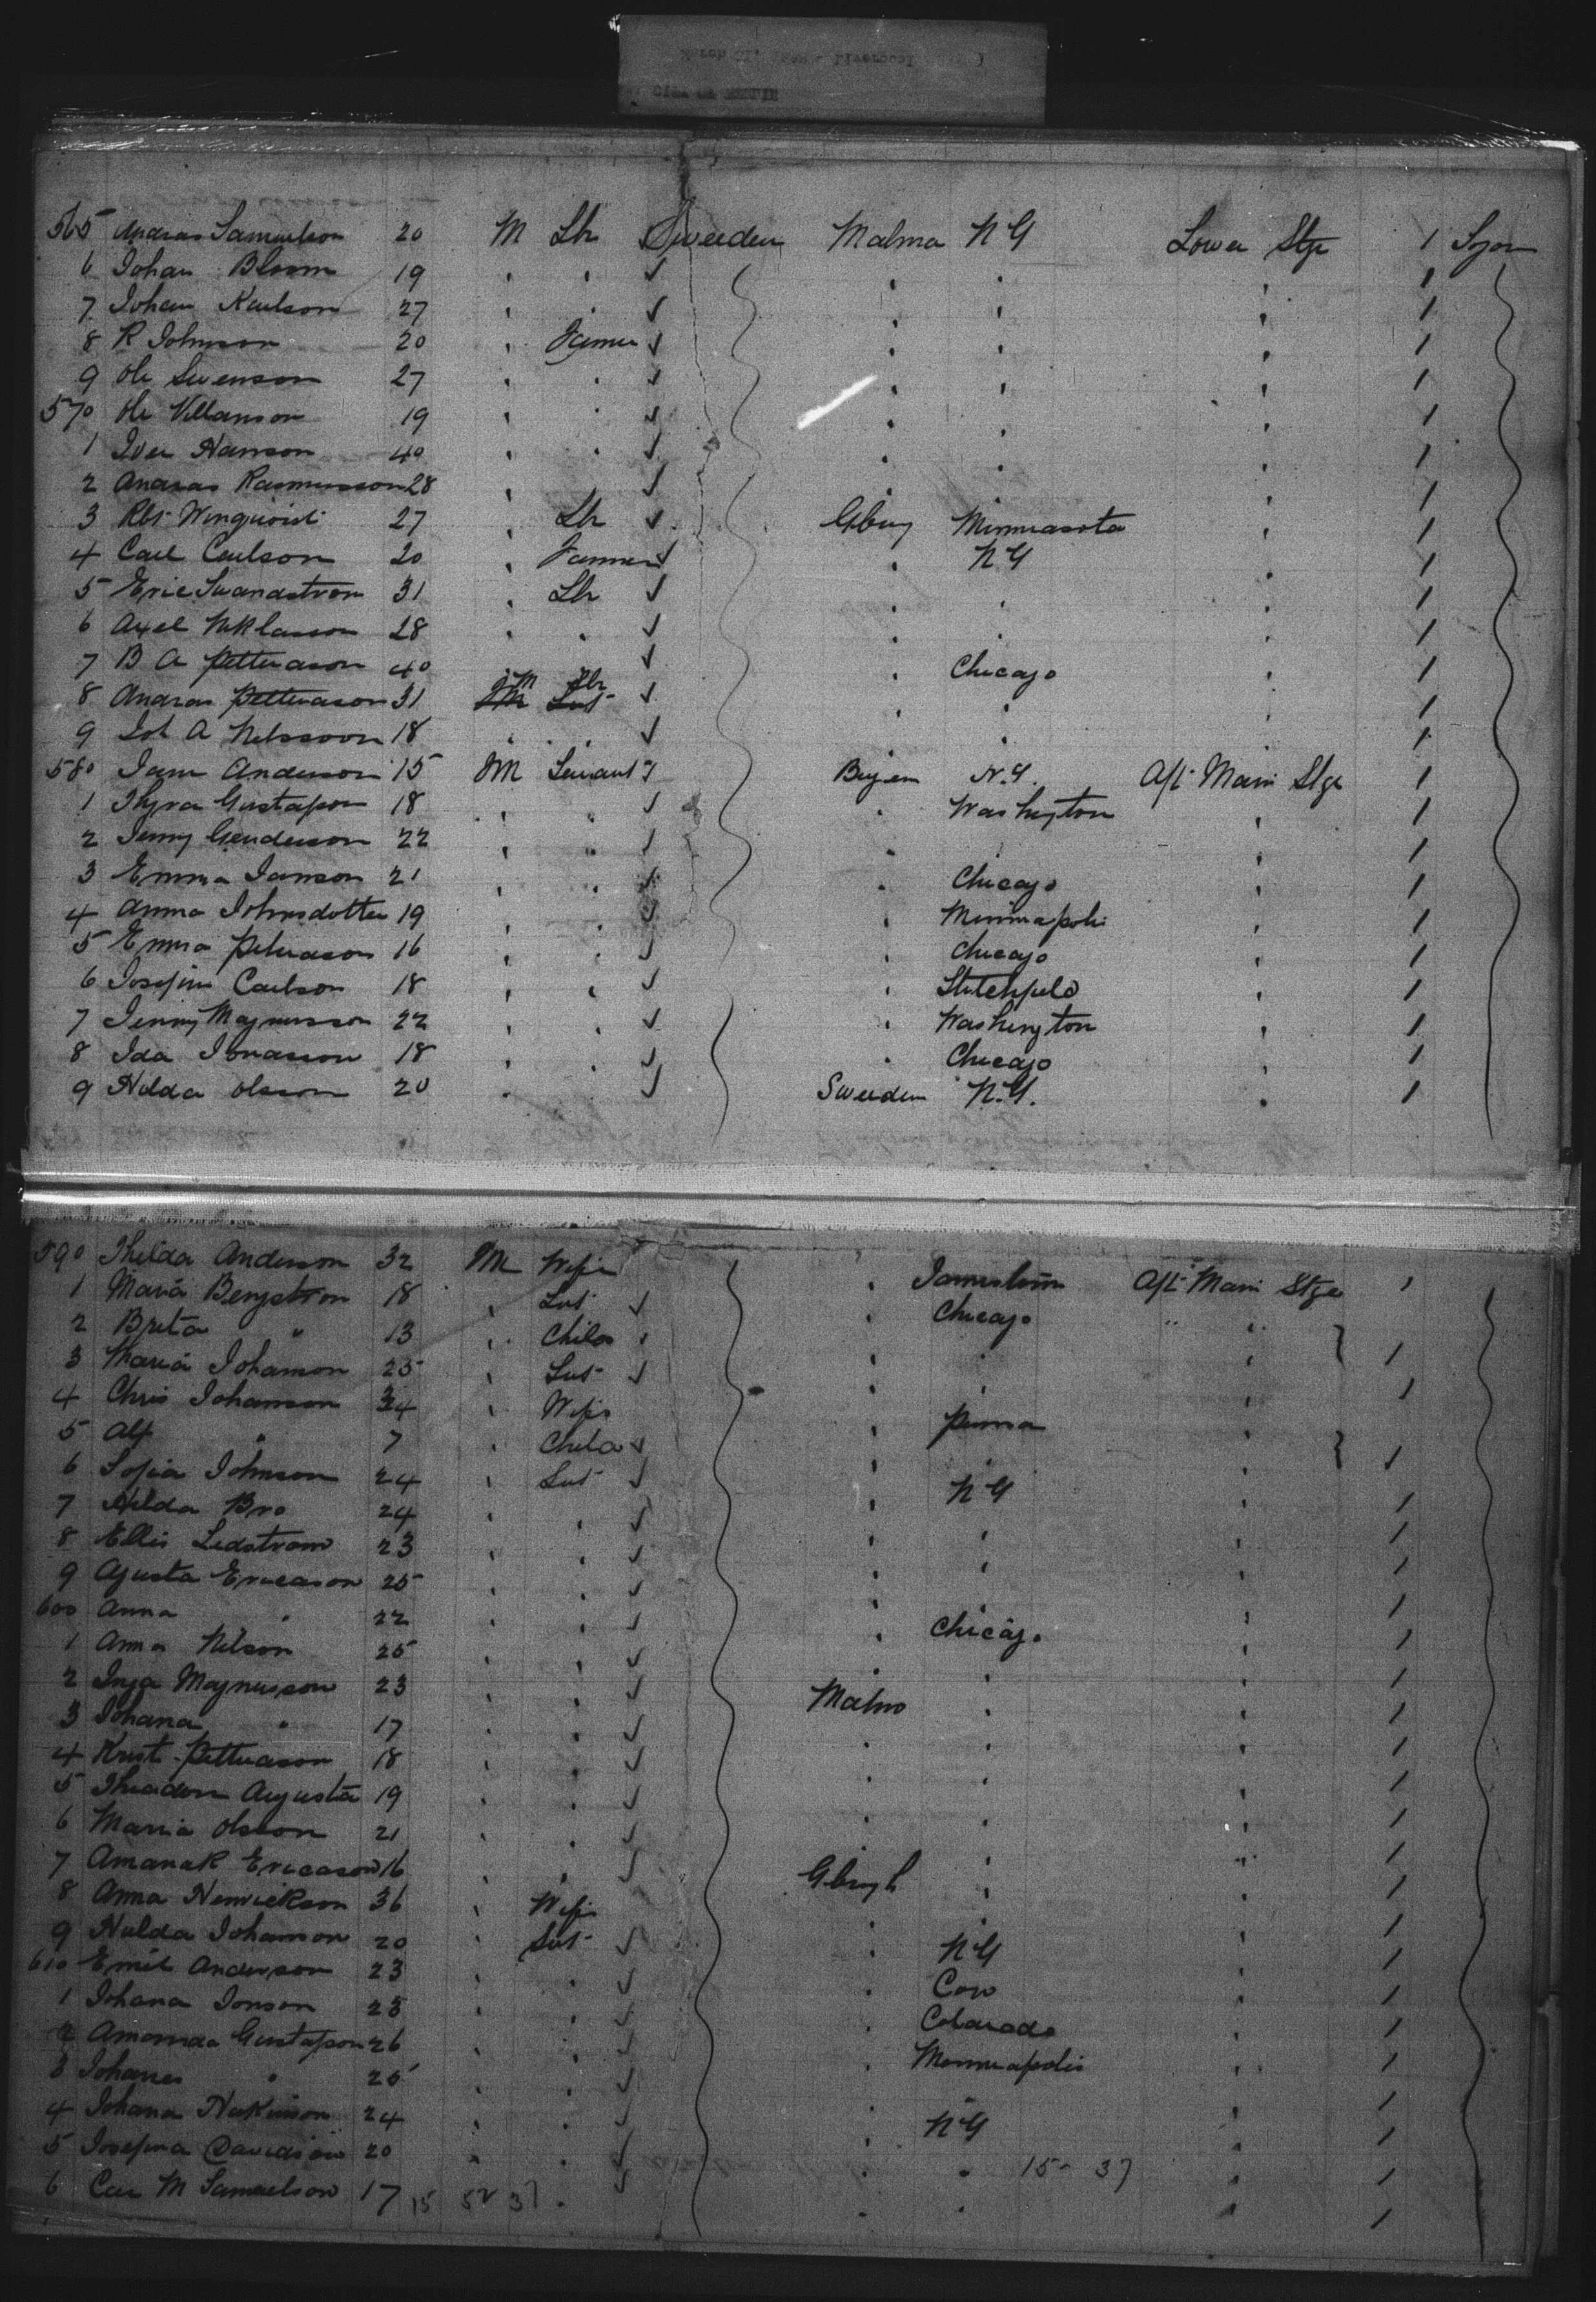 565 Andras Samuelson 20 M Lbr Sweeden Malma N Y Lower Stge 1 Sojor
6 Johan Bloom 19 " " " " " 1
7 Johan Karlson 27 " " " " " 1
8 R Johnson 20 " Farmer " " " 1
9 Ole Swenson 27 " " " " " 1
570 Ole Villanson 19 " " " " " 1
1 Iver Hanson 40 " " " " " 1
2 Andras Rasmusson 28 " " " " 1
3 Rbt Winquoist 27 " Lbr Gbury Minneasota " 1
4 Carl Carlson 20 " Farmer " N Y " 1
5 Eric Swandstrom 31 " Lbr " " " 1
6 Axel Niklasson 28 " " " " " 1
7 B A Petterason 40 " Chicago " 1
8 Andras Petterason 31 " " 1
9 Joh A Nelssoon 18 " " " " 1
580 Jane Anderson 15 M Servant Bergen N.Y. Aft Main Stge 1
1 Thyra Gustafson 18 " " " Washington " 1
2 Jenny Genderson 22 " " " " 1
3 Emma Janson 21 " " " Chicago " 1
4 Anna Johnsdotter 19 " " " Minnapolis " 1
5 Emma Peterason 16 " " " Chicago " 1
6 Josefine Carlson 18 " " " Stitchfield " 1
7 Jenny Magnusson 22 " " " Washington " 1
8 Ida Jonasson 18 " " " Chicago " 1
9 Hilda Olsson 20 " Sweeden N.Y. " 1
590 Thilda Anderson 32 M Wife " Jamestown Aft Main Stge 1
1 Maria Bergstron 18 " Svt Chicago " "
2 Brita " 13 " Child " " " 1
3 Maria Johanson 25 " Svt " " " 1
4 Chris Johanson 34 " Wife " Penna "
5 Alf " 7 " Child " " " 1
6 Sofia Johnson 24 " Svt " N Y " 1
7 Hilda Bro 24 " " " " " 1
8 Ellis Ledstrom 23 " " " " " 1
9 Agusta Ericason 25 " " " " 1
600 Anna " 22 " " " Chicago " 1
1 Anna Nilson 25 " " " " " 1
2 Inga Magnusson 23 " " Malmo " " 1
3 Johana " 17 " " " " " 1
4 Krist Petterason 18 " " " " " 1
5 Augusta 19 " " " " " 1
6 Maria Olsson 21 " " " " 1
7 Ericason 16 " " Gburgh " " 1
8 Anna Henrickson 36 " Wife " " " 1
9 Hulda Johanson 20 " Svt " N Y " 1
610 Emil Anderson 23 " " " Cow " 1
1 Johana Jonson 23 " " " Colarado " 1
2 Amanda Gustafson 26 " " " Minneapolis " 1
3 Johanes " 25 " " " " 1
4 Johana 24 " " " N Y " 1
5 Josefina Davidson 20 " " " " 15 - 37 " 1
6 M Samuelson 17 15 52 37 " " " " 1